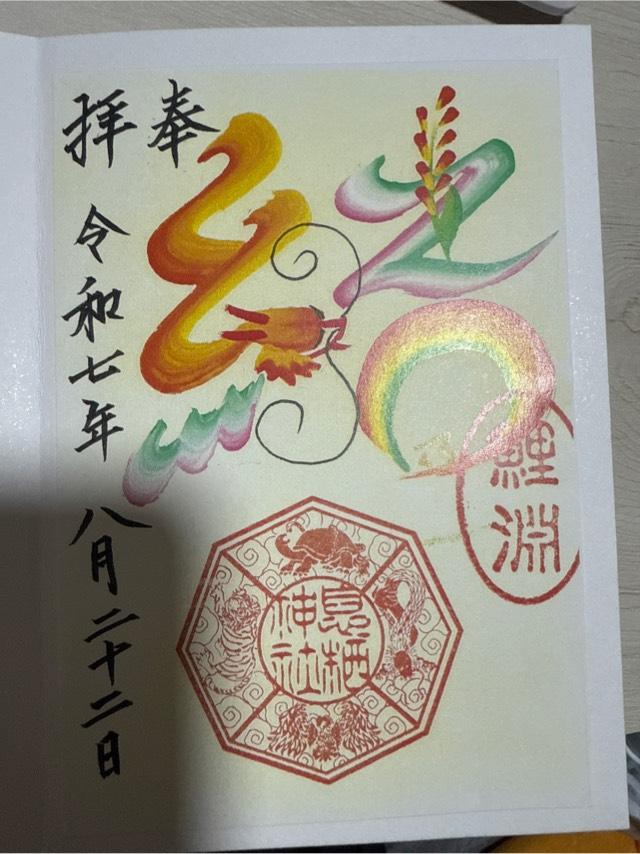 奉拝
結
鯉淵
令和七年 八月二十二日
息栖神社